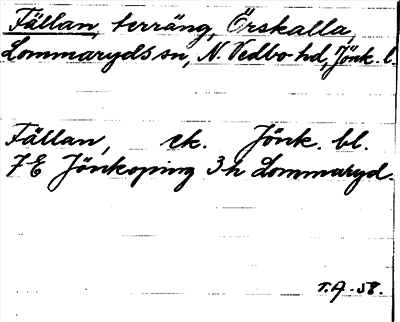 Fällan, terräng, Örskalla,
Lommaryds sn, N. Vedbo hd, Jönk. l.
Fällan, ek. Jönk. bl.
7E Jönköping 3h Lommaryd.
T.A -58.